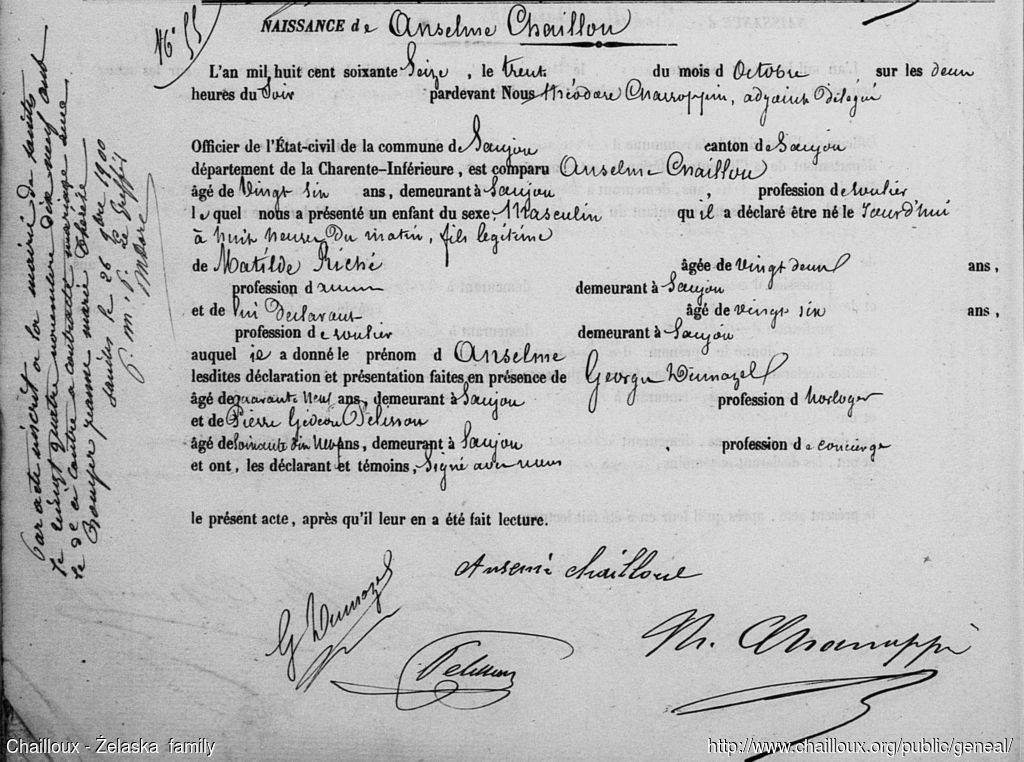 N° 55
NAISSANCE de Anselme Chaillou
L'an mil huit cent soixante Seize, le trente du mois d Octobre sur les deux
heures du Soir pardevant Nous Théodore Charroppin, adjoint délégué
Officier de l'État-civil de la commune de Saujon canton de Saujon
département de la Charente-Inférieure, est comparu Anselme Chaillou
âgé de Vingt Six ans, demeurant à Saujon, profession de roulier
lequel nous a présenté un enfant du sexe Masculin qu'il a déclaré être né le Jourd'hui
à huit heures du matin, fils légitime
de Matilde Riché âgée de vingt deux ans,
profession d demeurant à Saujon
et de lui Déclarant âgé de vingt six ans,
profession de roulier demeurant à Saujon
auquel je a donné le prénom d Anselme
lesdites déclaration et présentation faites en présence de George Dumazel
âgé de quarante Neuf ans, demeurant à Saujon profession d horloger
et de Pierre Gédéon Pelisson
âgé de Soixante dix Neuf ans, demeurant à Saujon, profession de concierge
et ont, les déclarant et témoins, Signé avec nous
le présent acte, après qu'il leur en a été fait lecture.
Anselme Chailloue
G Dumazel
Pelisson
Th. Charroppin
Par acte inscrit à la mairie de Saintes
le vingt quatre novembre dix neuf cent
le d. ci contre a contracté mariage avec
Bouyer Jeanne Marie Thérèse
Saintes le 26 9bre 1900
Le Greffier
Chailloux - Żelaska family
http://www.chailloux.org/public/geneal/